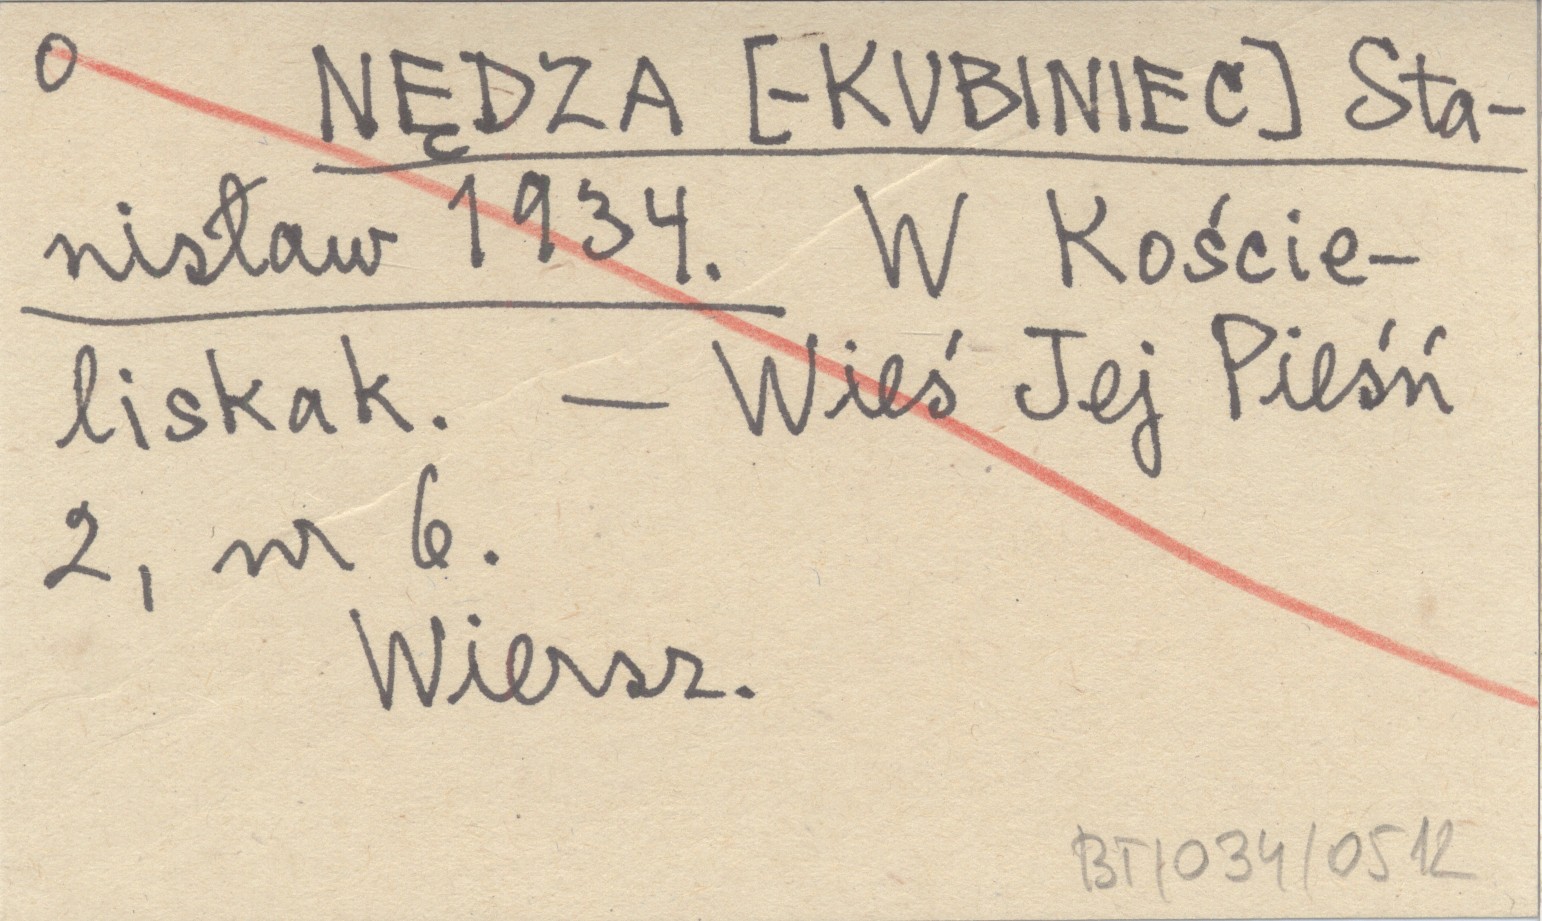 O NĘDZA [-KUBINIEC] Sta-
nisław 1934. W Koście-
liskak. — Wieś Jej Pieśń
2, nr 6.
Wiersz.
BT/034/0512